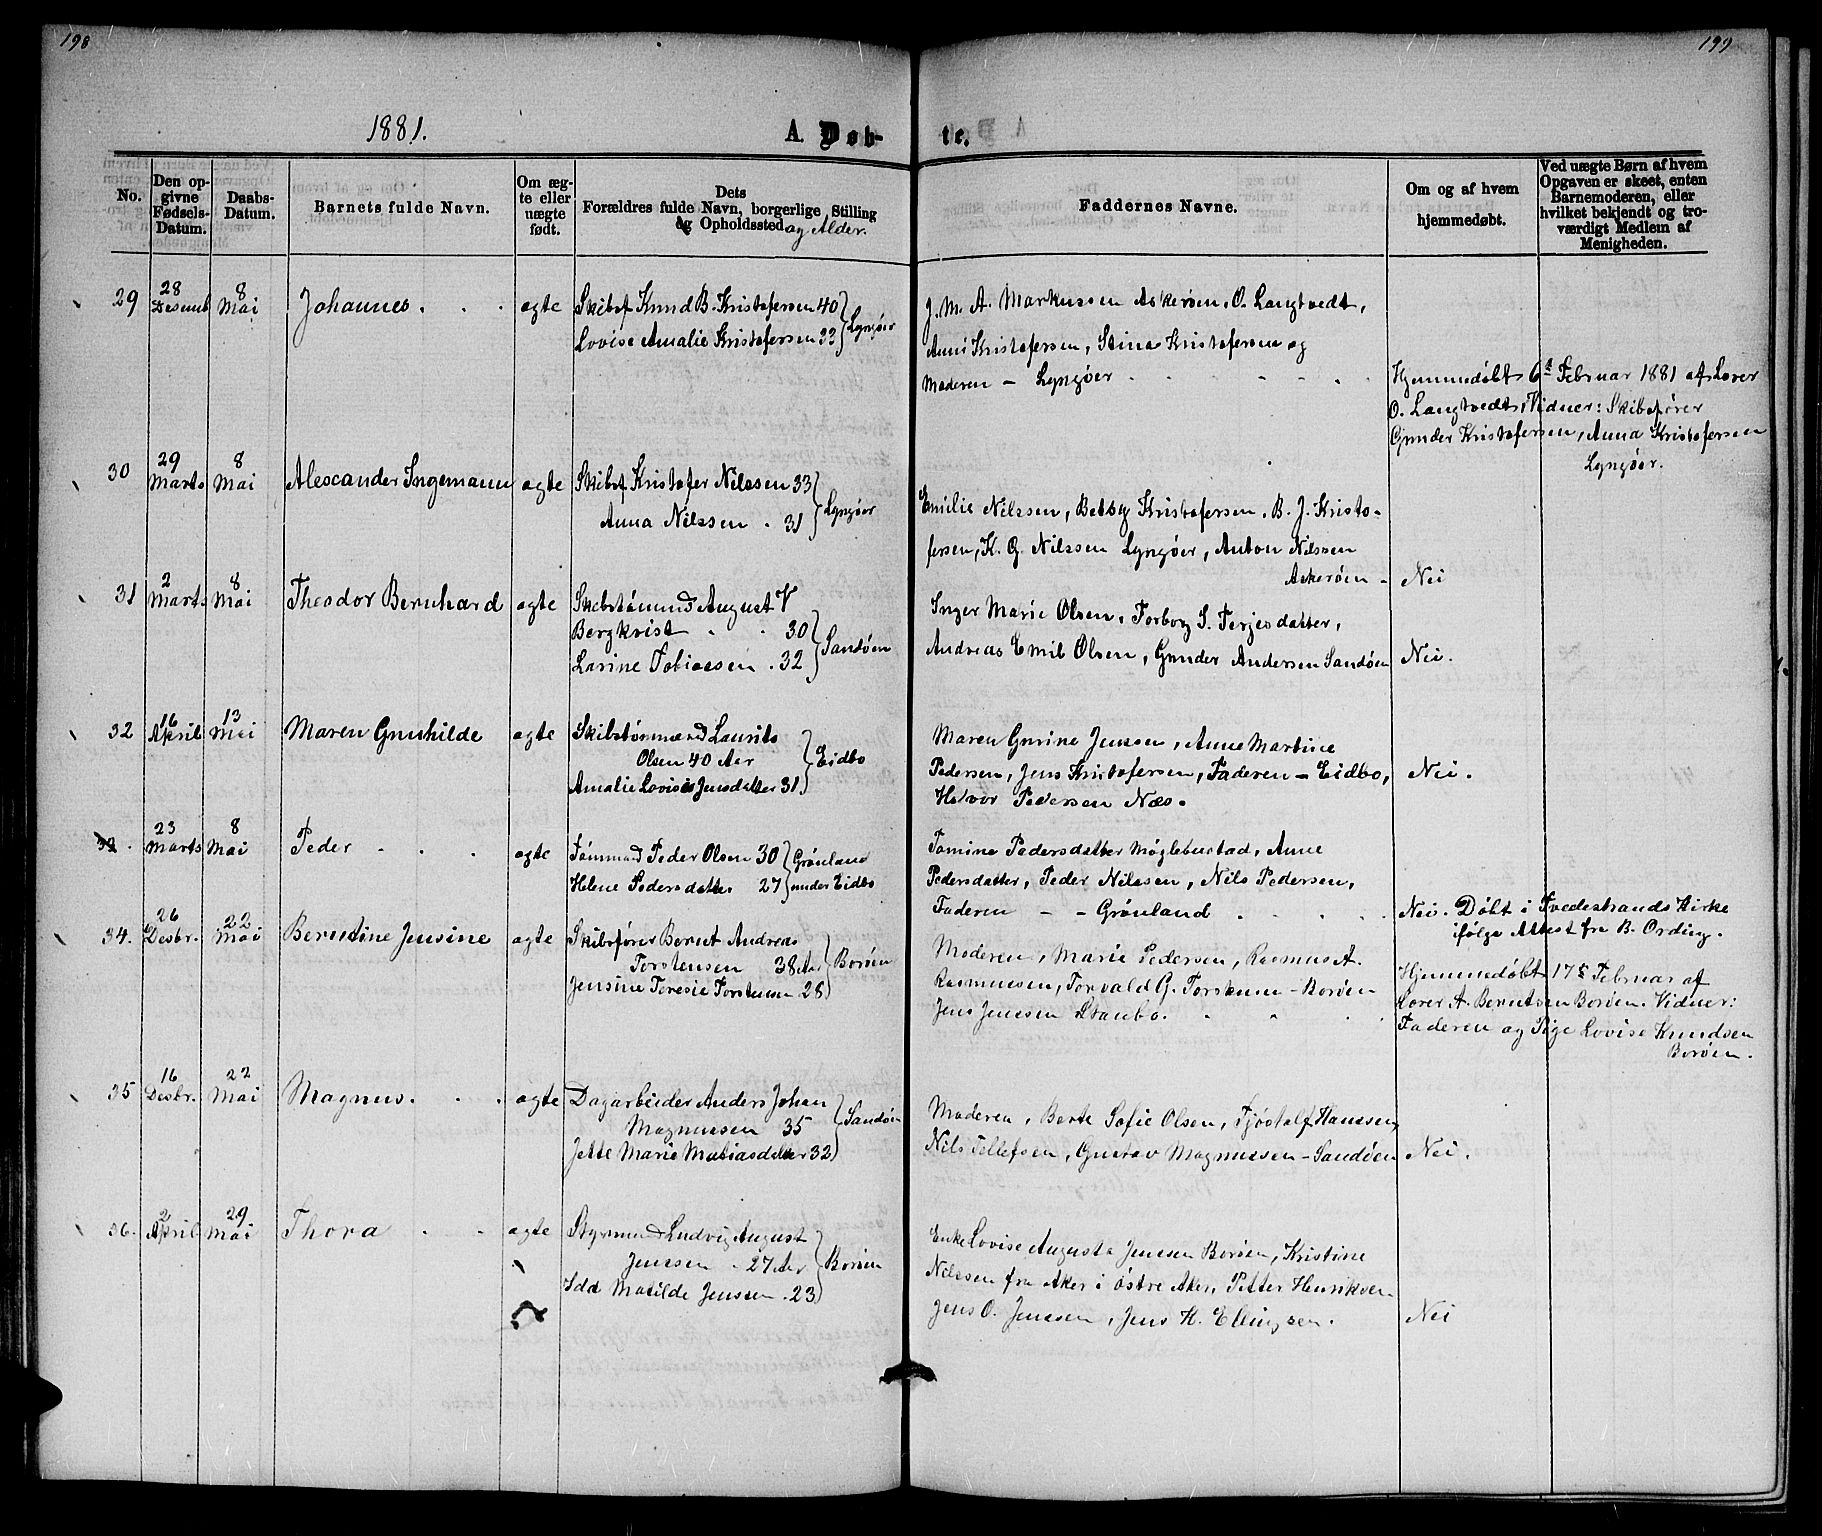 198
199
1881.
A. Døb-
te.
No.
Den op-
givne
Fødsels-
Datum.
Daabs-
Datum.
Barnets fulde Navn.
Om æg-
te eller
uægte
født.
Dets
Forældres fulde Navn, borgerlige Stilling
og Opholdssted og Alder.
Faddernes Navne.
Om og af hvem
hjemmedøbt.
Ved uægte Børn af hvem
Opgaven er skeet, enten
Barnemoderen, eller
hvilket bekjendt og tro-
værdigt Medlem af
Menigheden.
29
28
Desemb
8
Mai
Johannes
ægte
Skibsf Knud B. Kristofersen 40
Lovise Amalie Kristofersen 33
Lyngøer
J. M. A. Markussen Askerøen, O. Langtvedt,
Anne Kristofersen, Stina Kristofersen og
Moderen – Lyngøer
Hjemmedøbt 6te Februar 1881 af Lærer
O. Langtvedt, Vidner: Skibsfører
Gunder Kristofersen, Anna Kristofersen
Lyngøer.
30
29
Marts
8
Mai
Alexander Ingemann
ægte
Skibsf Kristofer Nilssen 33
Anna Nilssen . 31
Lyngøer
Emilie Nilssen, Betsy Kristofersen, B. J. Kristo-
fersen, K. G. Nilssen Lyngøer, Anton Nilssen
Askerøen –
Nei
31
2
Marts
8
Mai
Theodor Bernhard
ægte
Skibstømmd August V
Bergkvist . . 30
Larine Tobiassen . 32
Sandøen
Inger Marie Olsen, Torborg S. Terjesdatter,
Andreas Emil Olsen, Gunder Andersen Sandøen
Nei.
32
16
April
13
Mai
Maren Gunhilde
ægte
Skibstømmand Laurits
Olsen 40 Aar
Amalie Lovise Jensdatter 31
Eidbo
Maren Gurine Jensen, Anne Martine
Pedersen, Jens Kristofersen, Faderen – Eidbo,
Halvor Pedersen Næs.
Nei.
33.
23
Marts
8
Mai
Peder
ægte
Tømmnd Peder Olsen 30
Helene Pedersdatter 27
Grønland
under Eidbo
Tomine Pedersdatter Møglebustad, Anne
Pedersdatter, Peder Nilssen, Nils Pedersen,
Faderen – – Grønland
Nei. Døbt i Tvedestrands Kirke
ifølge Attest fra B. Ording.
34.
26
Desbr.
22
Mai
Berntine Jensine
ægte
Skibsfører Bernt Andreas
Torstensen 38 Aar
Jensine Teresie Torstensen 28
Borøen
Moderen, Marie Pedersen, Rasmus A.
Rasmussen, Torvald G. Torstensen – Borøen
Jens Jenssen Staubo.
Hjemmedøbt 17de Februar af
Lærer A. Berntsen Borøen. Vidner:
Faderen og Pige Lovise Knudsen
Borøen.
35
16
Desbr.
22
Mai
Magnus.
ægte
Dagarbeider Anders Johan
Magnussen 35
Jette Marie Matiasdatter 32
Sandøen
Moderen, Berte Sofie Olsen, Tjøstolf Hanssen,
Nils Tellefsen, Gustav Magnussen – Sandøen
Nei.
36.
2
April
29
Mai
Thora
ægte
Styrmnd Ludvig August
Jenssen . 27 Aar
Ida Matilde Jenssen . 23
Borøen
Enke Lovise Augusta Jenssen Borøen, Kristine
Nilssen fra Aker i Østre Aker, Petter Henriksen
Jens O. Jenssen, Jens H. Ellingsen.
Nei